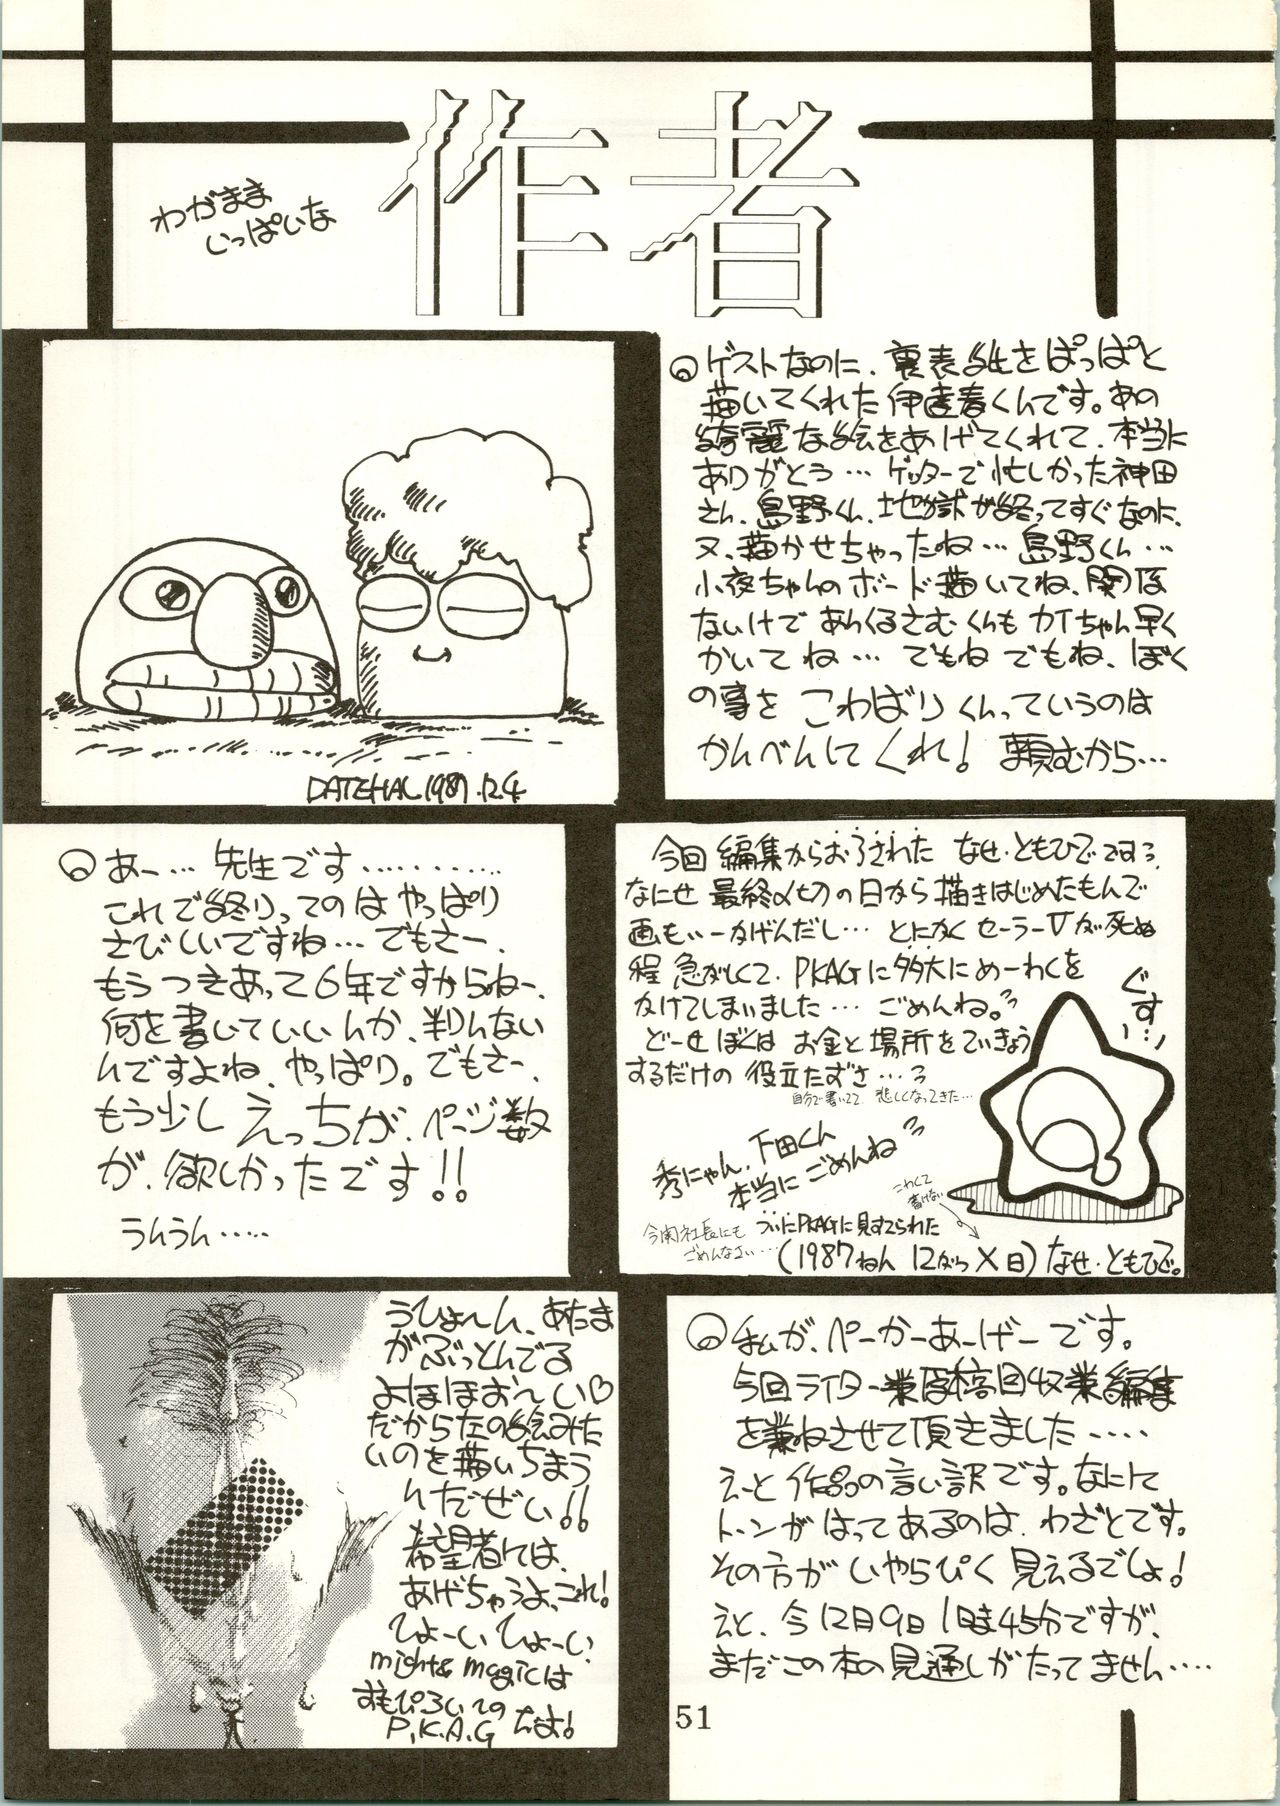 わがまま
いっぱいな
作者
ゲストなのに、裏表紙をぱっぱと
描いてくれた伊達春くんです。あの
綺麗な絵をあげてくれて、本当に
ありがとう… ゲッターで忙しかった神田
さん、島野くん、地獄が終ってすぐなのに、
又、描かせちゃったね… 島野くん…
小夜ちゃんのボード描いてね、関係
ないけであんくるさむくんもカイちゃん早く
かいてね… でもねでもね、ぼく
の事をこわばりくんっていうのは
かんべんしてくれ! 頼むから…
DATEHAL 1987.12.4
あー… 先生です…………
これで終りってのはやっぱり
さびしいですね… でもさー、
もうつきあって6年ですからねー、
何を書いていいんか、判んない
んですよね、やっぱり。でもさー、
もう少しえっちが、ページ数
が、欲しかったです!!
うんうん……
今回編集からおろされた なせ・ともひでです
なにせ最終〆切の日から描きはじめたもんで
画もいーかげんだし… とにかくセーラーVが死ぬ
程急がしくて、PKAGに多大にめーわくを
かけてしまいました… ごめんね。
どーせぼくはお金と場所をていきょう
するだけの役立たずさ…
自分で書いてて 悲しくなってきた…
ぐす…
秀にゃん、下田くん
本当にごめんね
こわくて
書けない
今関社長にも
ごめんなさい…
ついにPKAGに見すてられた
(1987ねん 12がつ X日) なせ・ともひで。
うひょ〜ん、あたま
がぶっとんでる
よほほお〜い♡
だから左の絵みた
いのを描いちまう
んだぜい!!
希望者には、
あげちゃうよ、これ!
ひょーいひょーい、
might & magicは
おもぴろいての
P.K.A.G だよ!
私が、ぺーかーあーげーです。
今回ライター業原稿回収業編集
を兼ねさせて頂きました……
えーと作品の言い訳です。なにして
トーンがはってあるのは、わざとです。
その方がいやらぴく見えるでしょ!
えと、今12月9日1時45分ですが、
まだこの本の見通しがたってません……
51